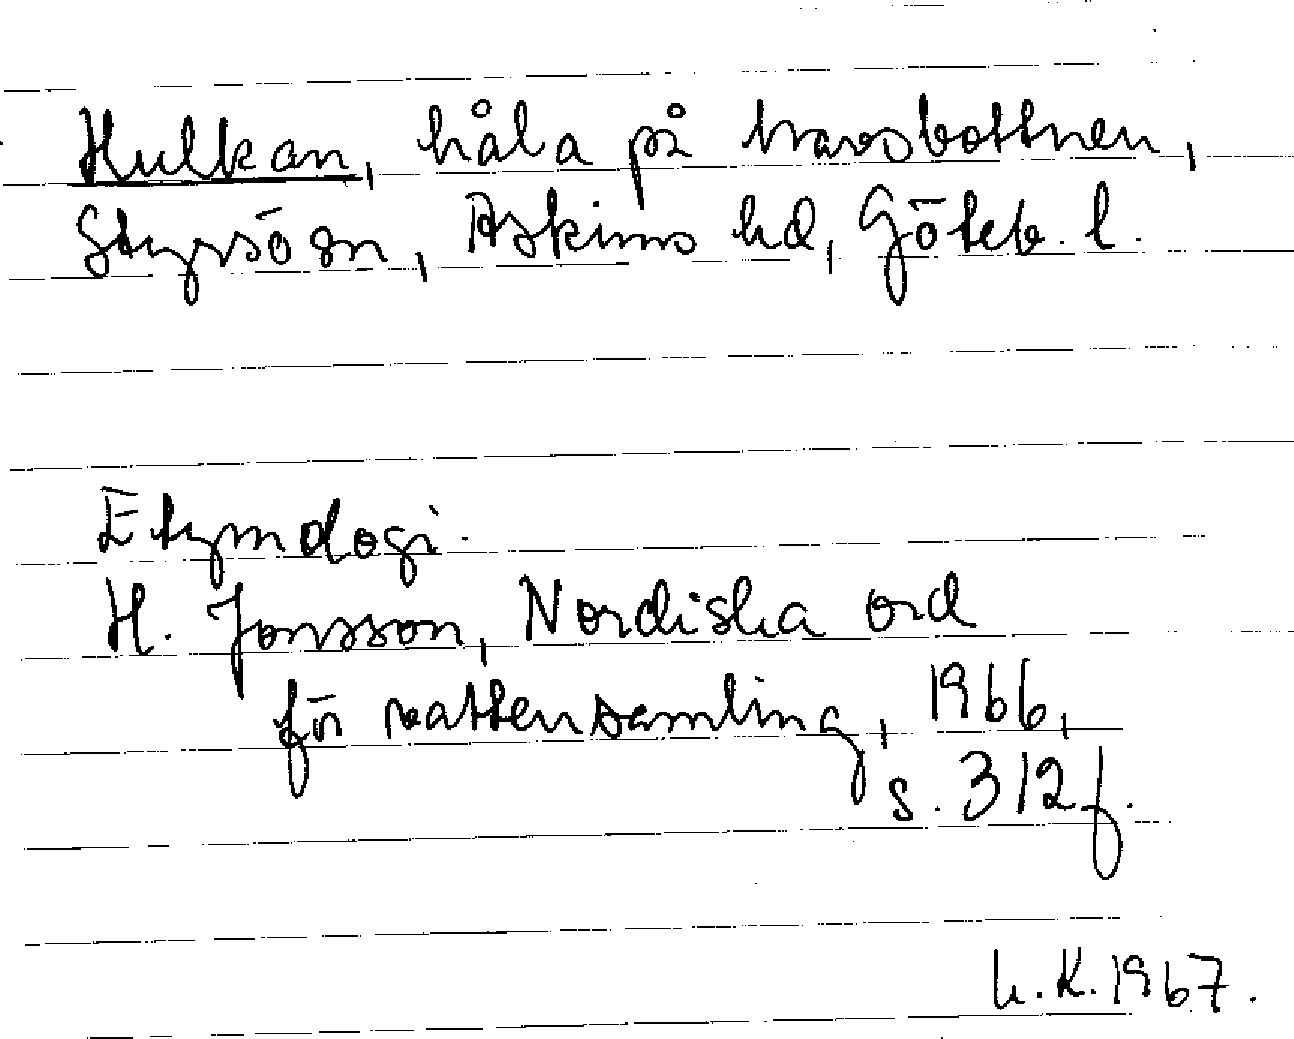 Hulkan, håla på havsbottnen,
Styrsö sn, Askims hd, Göteb. l.
Etymologi.
H. Jonsson, Nordiska ord
för vattensamling, 1966,
s. 312 f.
K. 1967.